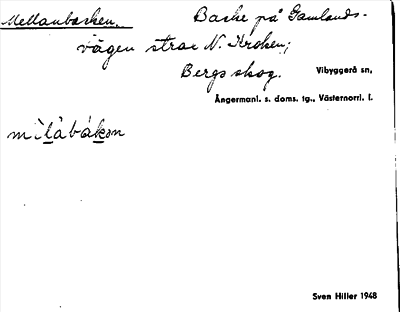 Mellanbacken. Backe på Gamlands-
vägen strax N. Kroken;
Bergs skog. Vibyggerå sn,
Ångermanl. s. doms. tg., Västernorrl. l.
Sven Hiller 1948